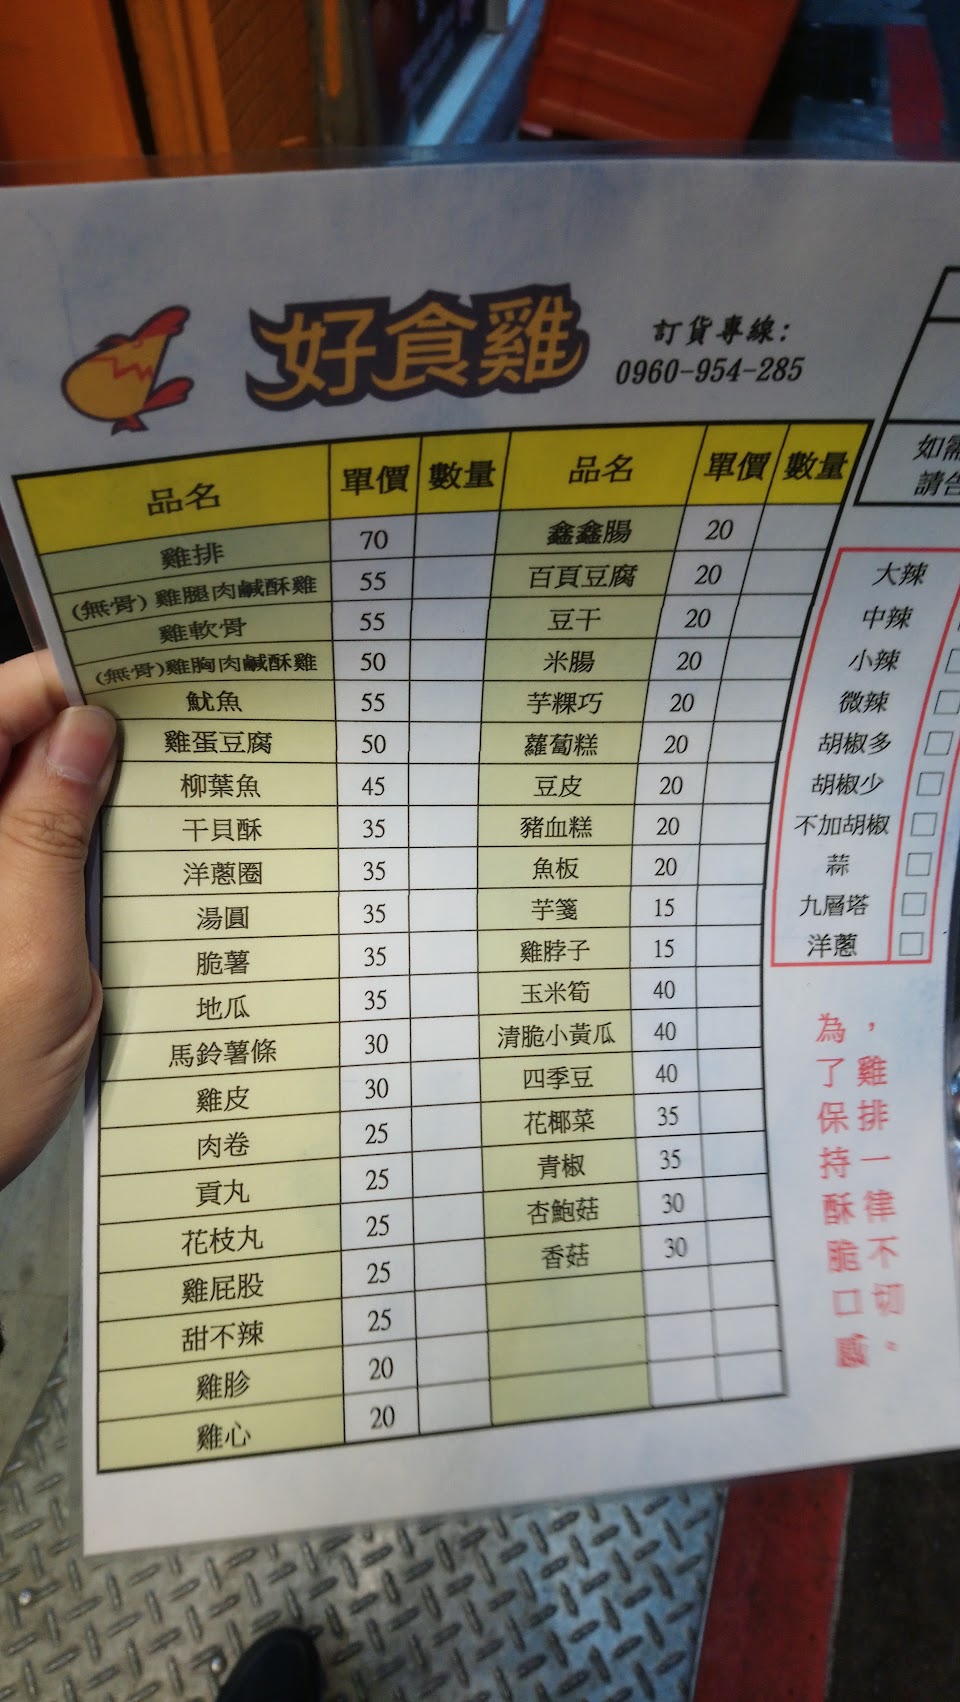 好食雞
訂貨專線:
0960-954-285
品名 單價 數量 品名 單價 數量
雞排 70 鑫鑫腸 20
(無骨)雞腿肉鹹酥雞 55 百頁豆腐 20
雞軟骨 55 豆干 20
(無骨)雞胸肉鹹酥雞 50 米腸 20
魷魚 55 芋粿巧 20
雞蛋豆腐 50 蘿蔔糕 20
柳葉魚 45 豆皮 20
干貝酥 35 豬血糕 20
洋蔥圈 35 魚板 20
湯圓 35 芋箋 15
脆薯 35 雞脖子 15
地瓜 35 玉米筍 40
馬鈴薯條 30 清脆小黃瓜 40
雞皮 30 四季豆 40
肉卷 25 花椰菜 35
貢丸 25 青椒 35
花枝丸 25 杏鮑菇 30
雞屁股 25 香菇 30
甜不辣 25
雞胗 20
雞心 20
如需
請告
大辣
中辣
小辣
微辣
胡椒多
胡椒少
不加胡椒
蒜
九層塔
洋蔥
為了保持酥脆口感
，雞排一律不切。